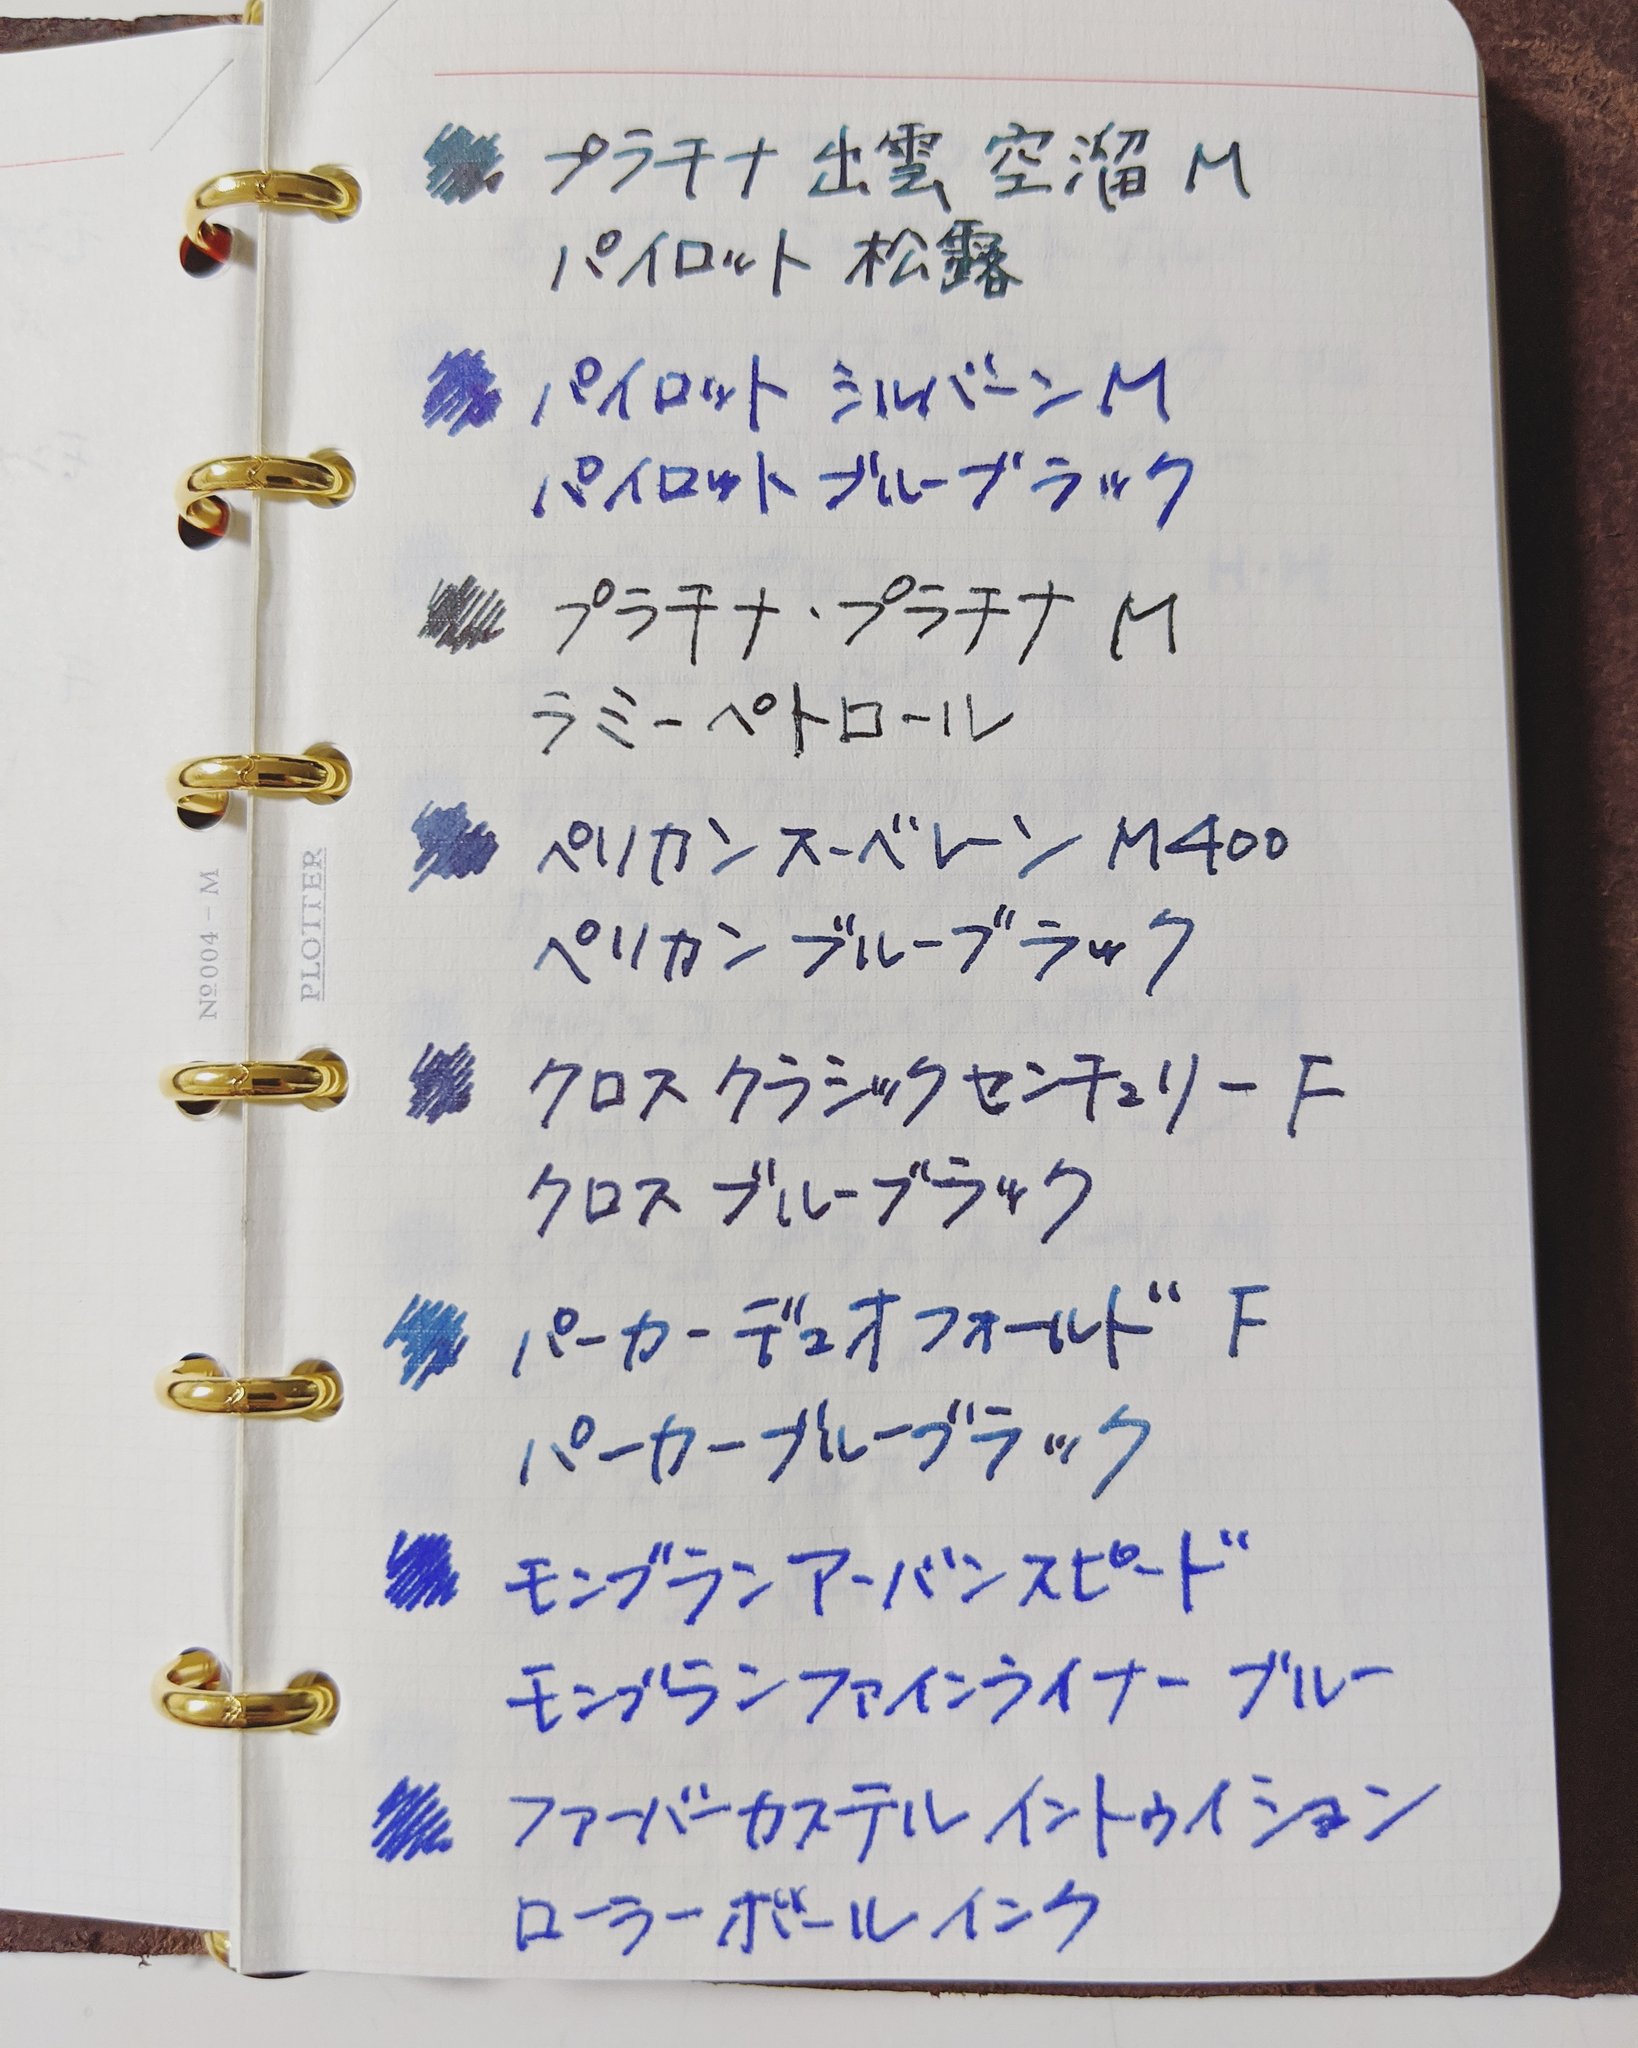 プラチナ 出雲 空溜 M
パイロット 松露
パイロット シルバーン M
パイロット ブルーブラック
プラチナ・プラチナ M
ラミーペトロール
ペリカン スーベレーン M400
ペリカン ブルーブラック
クロス クラシックセンチュリー F
クロス ブルーブラック
パーカー デュオフォールド F
パーカーブルーブラック
モンブラン アーバンスピード
モンブランファインライナー ブルー
ファーバーカステル イントゥイション
ローラーボールインク
№004-M
PLOTTER